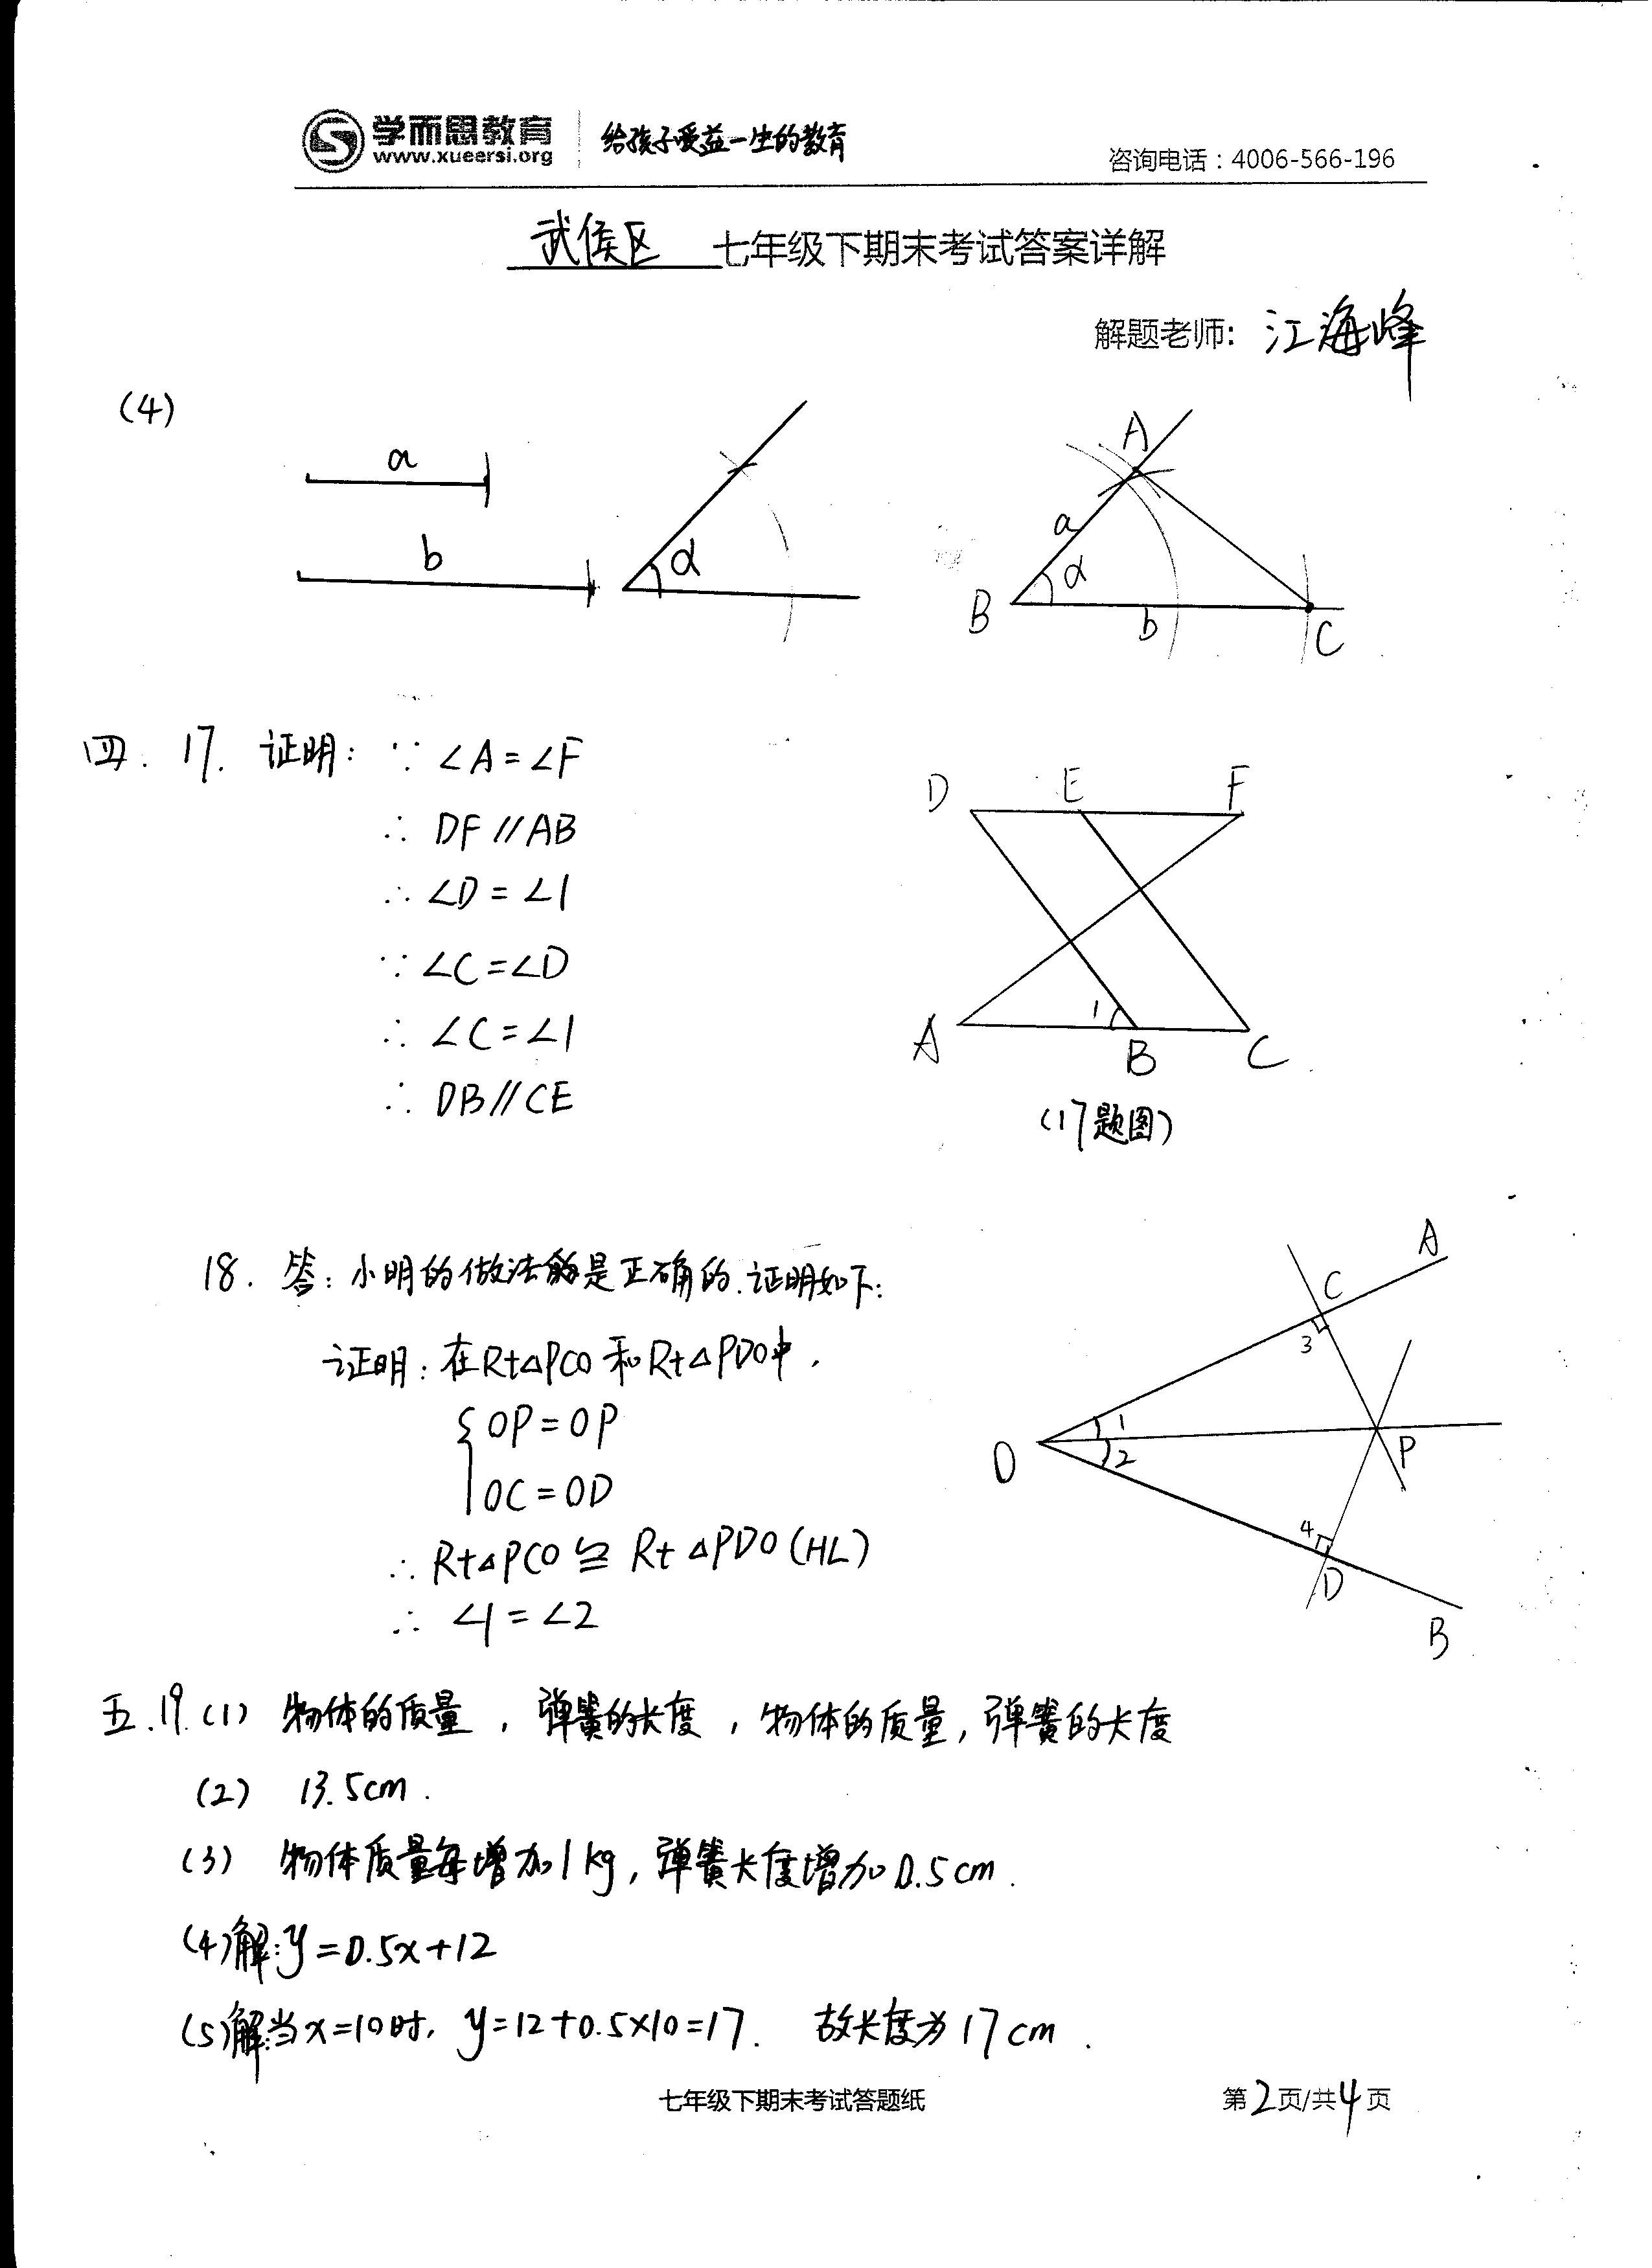 学而思教育
www.xueersi.org
给孩子受益一生的教育
咨询电话：4006-566-196
武侯区 七年级下期末考试答案详解
解题老师：江海峰
(4)
a
b
α
A
a
α
B
b
C
四. 17. 证明：∵ ∠A=∠F
∴ DF//AB
∴ ∠D=∠1
∵ ∠C=∠D
∴ ∠C=∠1
∴ DB//CE
D E F
1
A B C
(17题图)
18. 答：小明的做法是正确的.证明如下：
证明：在Rt△PCO和Rt△PDO中，
{OP=OP
OC=OD
∴ Rt△PCO≌Rt△PDO(HL)
∴ ∠1=∠2
A
C
3
1
O
2
P
4
D
B
五.19.(1) 物体的质量，弹簧的长度，物体的质量，弹簧的长度
(2) 13.5cm.
(3) 物体质量每增加1kg，弹簧长度增加0.5cm.
(4)解：y=0.5x+12
(5)解：当x=10时，y=12+0.5×10=17. 故长度为17cm.
七年级下期末考试答题纸
第2页/共4页